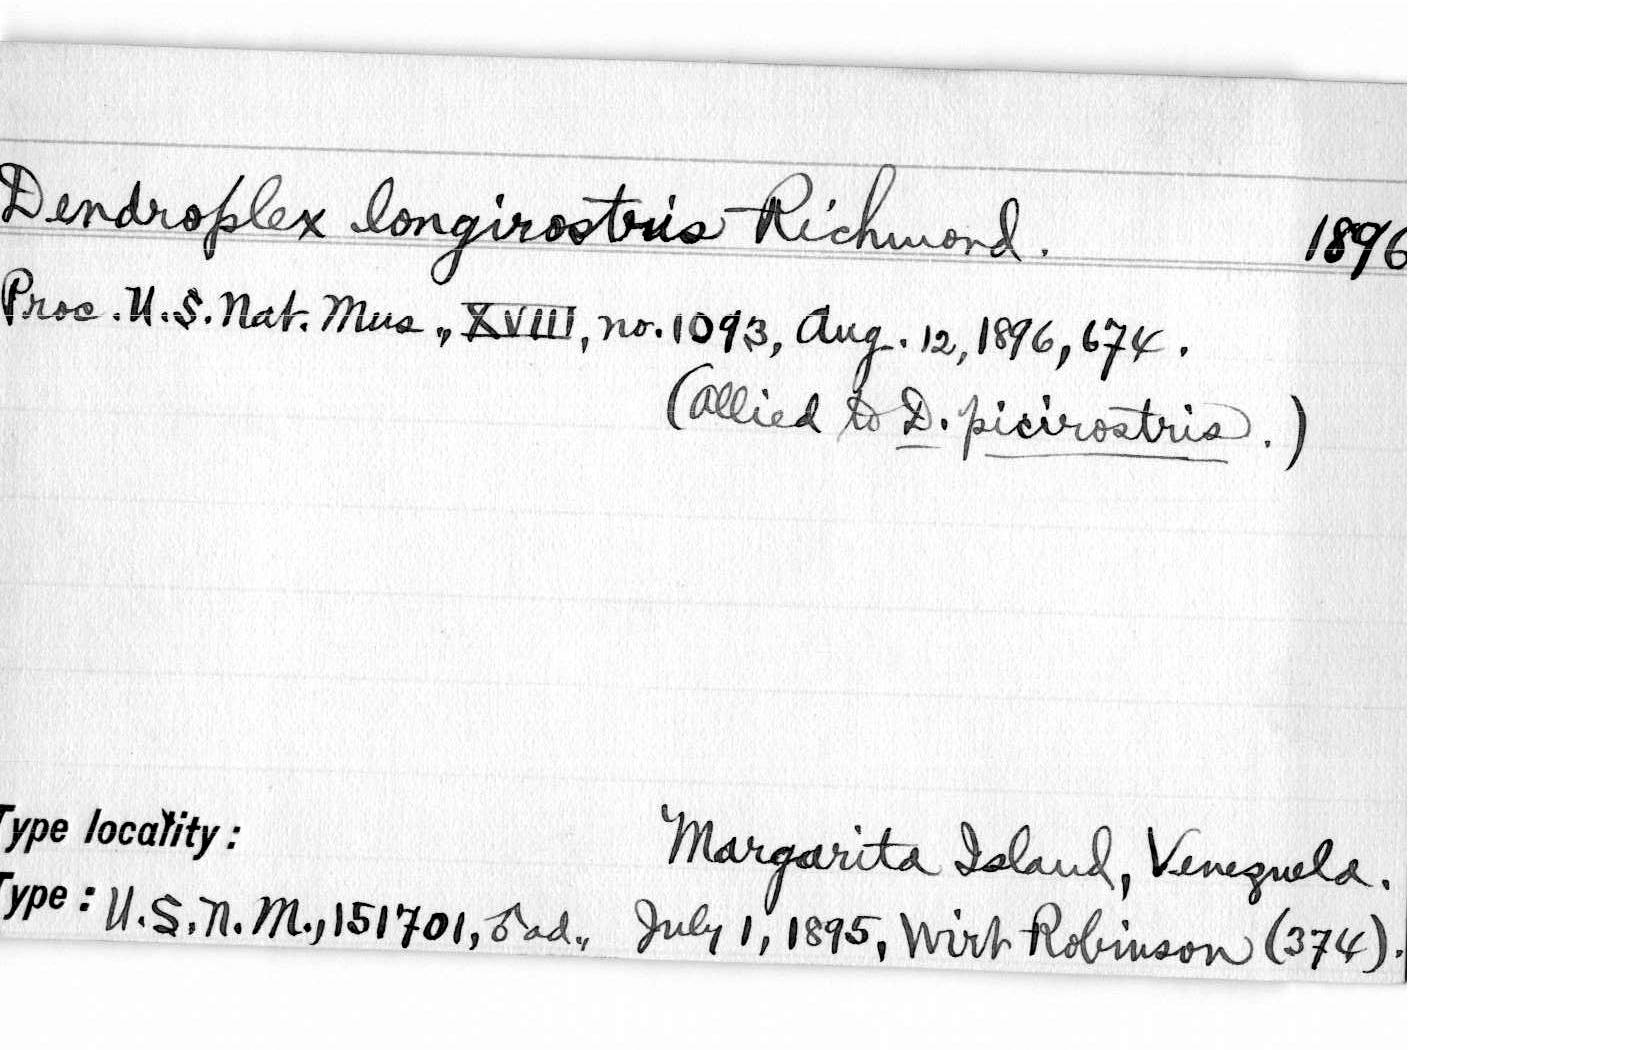 Dendroplex longirostris Richmond. 1896
Proc. U.S. Nat. Mus., XVIII, no. 1093, Aug. 12, 1896, 674.
(Allied to D. picirostris.)
Type locality: Margarita Island, Venezuela.
Type: U.S.N.M., 151701, ♂ ad., July 1, 1895, Wirt Robinson (374).